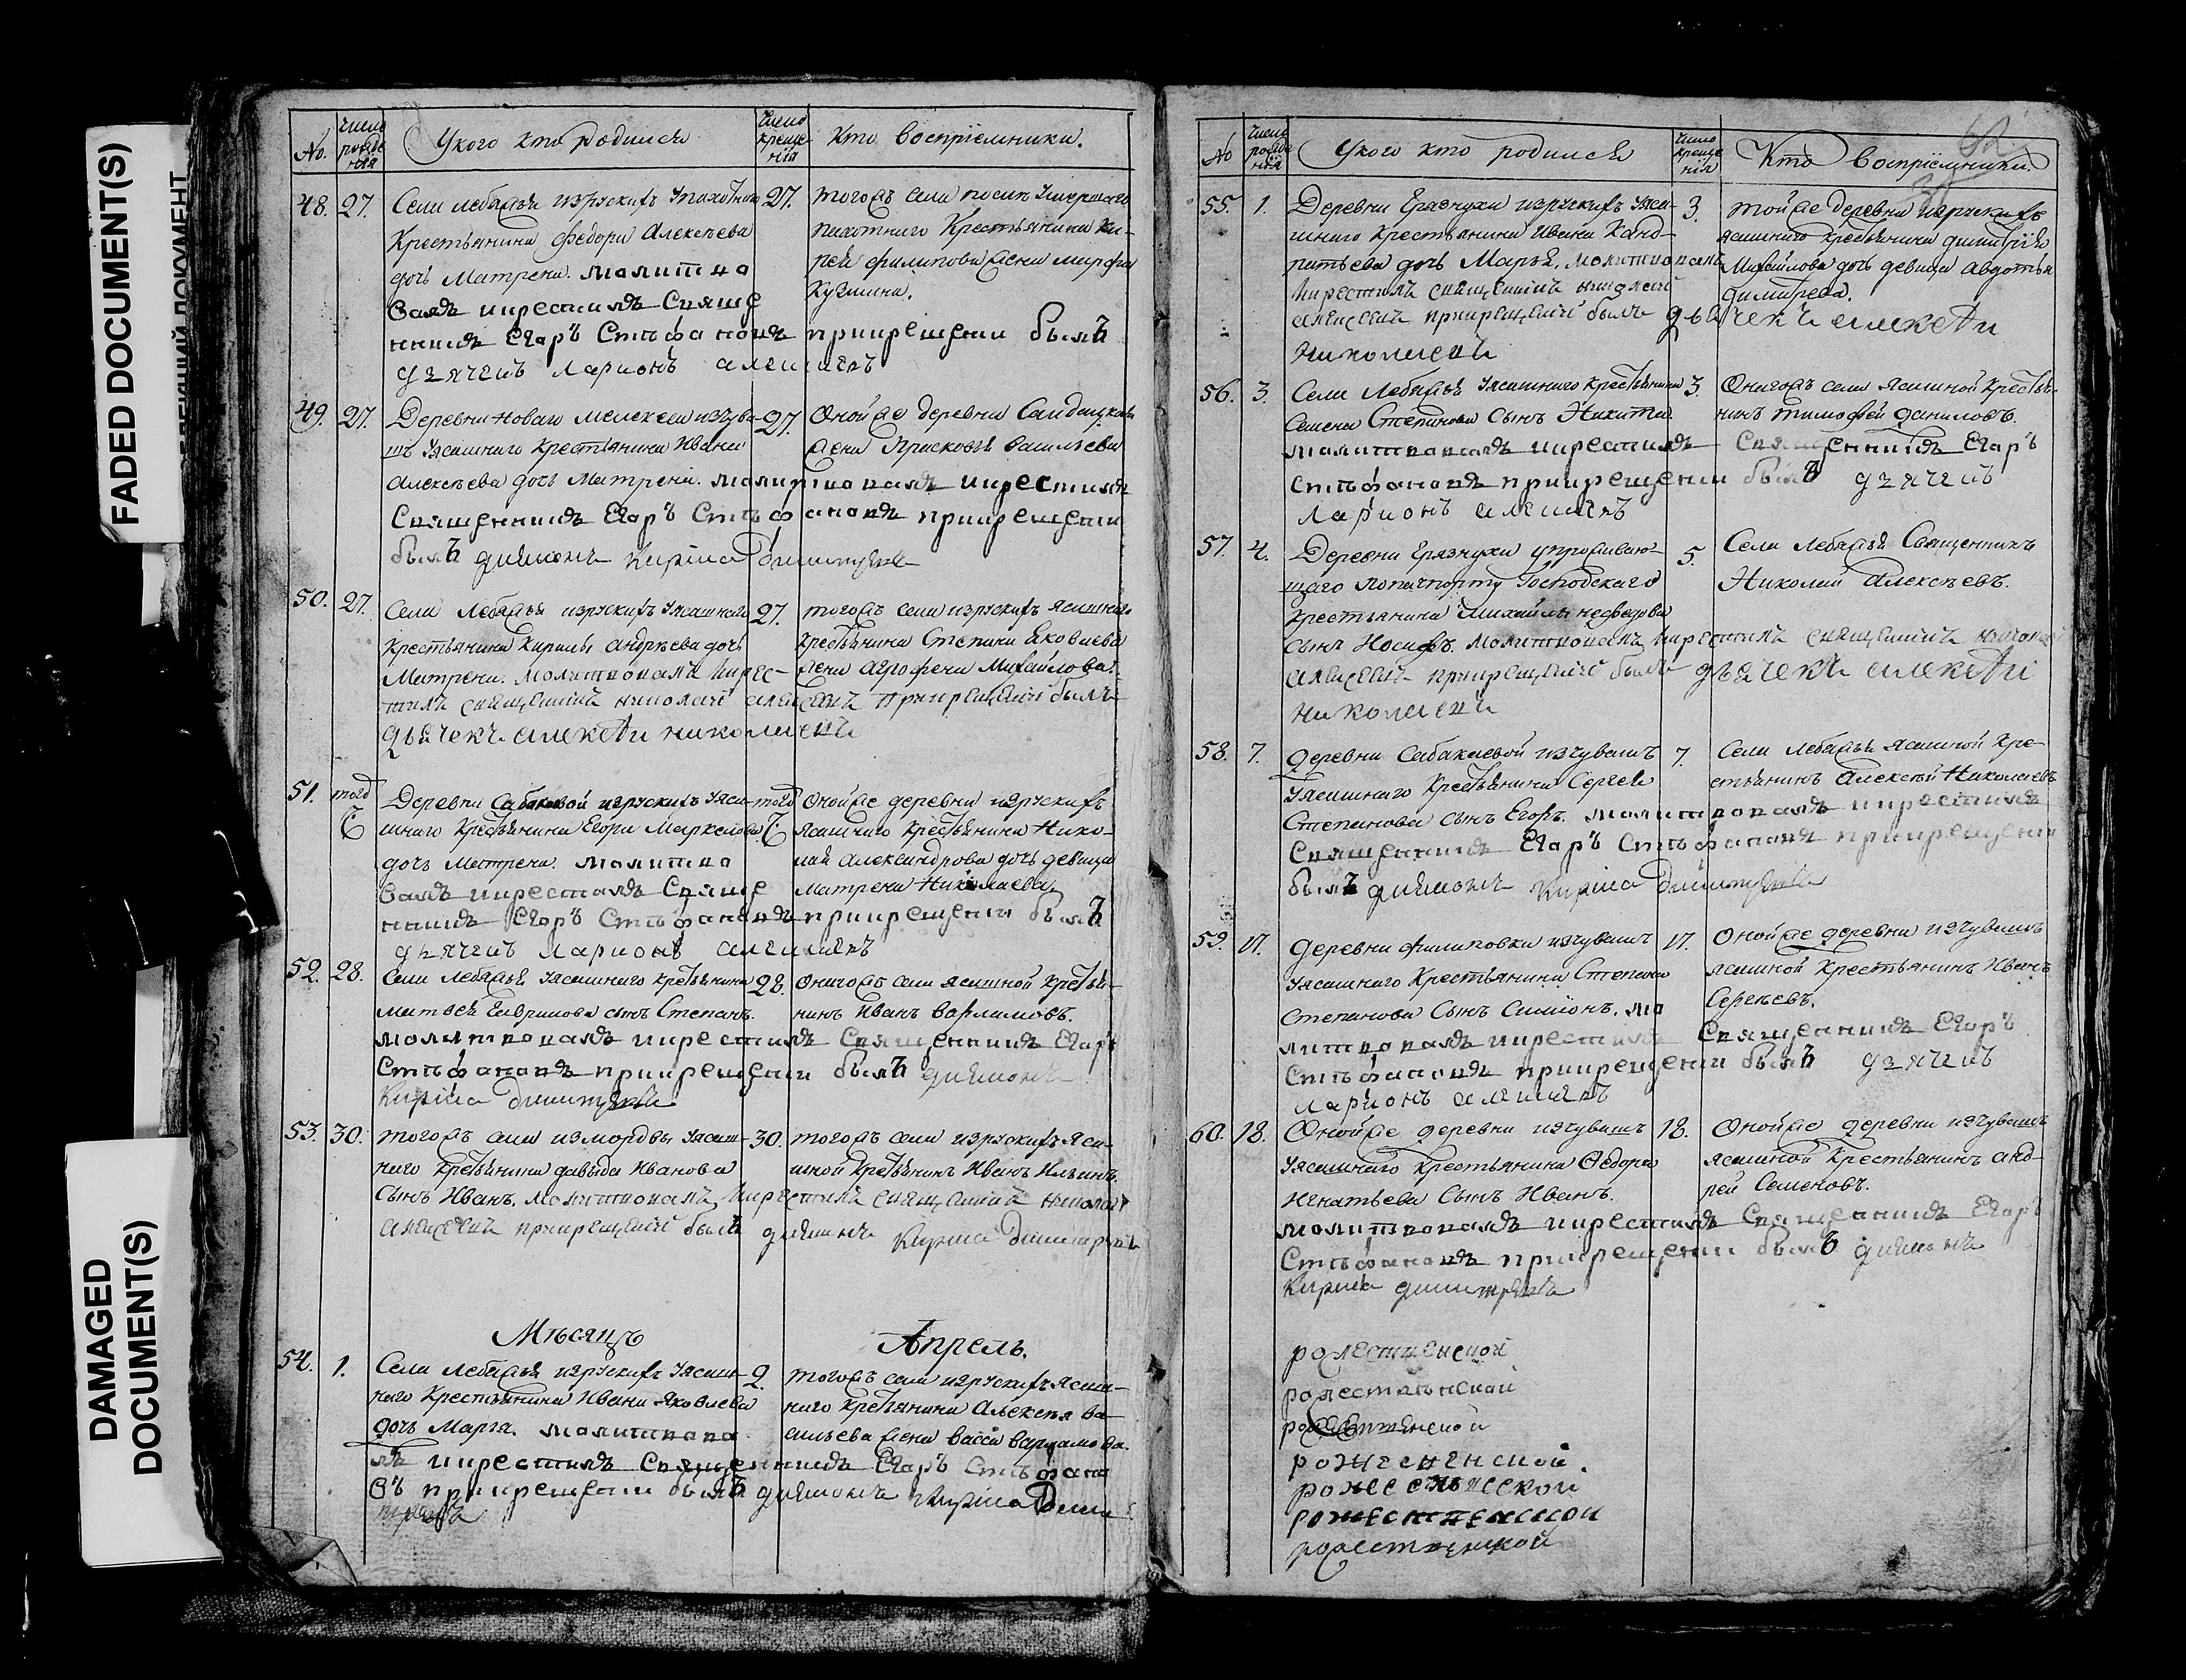 FADED DOCUMENT(S)
DAMAGED
DOCUMENT(S)
No.
число
рожде
нія
У кого кто родился
число
креще
нія
Кто Воспріемники.
48. 27.
Села Лебяжья изъ рускихъ У пахотнаго
Крестьянина Федора Алексѣева
дочь Матрена. молитво
валъ икрестилъ Свяще
нникъ Егоръ Стѣфановъ прикрещении былъ
дьячекъ Ларионъ
27.
тогожъ села
пахотнаго Крестьянина Ки-
рея Филипова жена Марфа
Кузмина.
49. 27.
Деревни Новаго Мелекеса изъ чува-
шъ Уясашнаго Крестьянина Ивана
Алексѣева дочь Матрена. молитвовалъ икрестилъ
Священникъ Егоръ Стѣфановъ прикрещении
былъ диаконъ Кирила
27.
Оной же деревни
жена Прасковья Васильева
50. 27.
Села Лебяжья изъ рускихъ Уясашнаго
Крестьянина Кирилы Андрѣева дочь
Матрена. молитвовалъ икрес-
тилъ священникъ николай алексеевъ прикрещении былъ
дьячекъ алексѣи николаевъ
27.
тогожъ села изъ рускихъ ясашнаго
крестьянина Степана Яковлева
жена Агрофена Михайлова.
51. тогожъ
Деревни Сабакаевой изъ рускихъ Уяса-
шнаго Крестьянина Егора Маркелова
дочь Матрена. молитво
валъ икрестилъ Свяще
нникъ Егоръ Стѣфановъ прикрещении былъ
дьячекъ Ларионъ
тогожъ
Оной же деревни изъ рускихъ
ясашнаго крестьянина Нико-
лая Александрова дочь девица
Матрена Николаева.
52. 28.
Села Лебяжья Уясашнаго Крестьянина
Матвея Гаврилова сынъ Степанъ.
молитвовалъ икрестилъ Священникъ Егоръ
Стѣфановъ прикрещении былъ диаконъ
Кирила
28.
Онагожъ села ясашной Крестья-
нинъ Иванъ Варламовъ.
53. 30.
тогожъ села измордвы Уясаш-
наго Крестьянина Давыда Иванова
Сынъ Иванъ. молитвовалъ икрестилъ священникъ николай
алексеевъ прикрещении былъ диаконъ Кирила
30.
тогожъ села изъ рускихъ яса-
шной Крестьянинъ Иванъ Ильинъ.
Мѣсяцъ Апрель.
54. 1.
Села Лебяжья изъ рускихъ Уясаш-
наго Крестьянина Ивана Яковлева
дочь Марья. молитвова
лъ икрестилъ Священникъ Егоръ Стѣфано
въ прикрещении былъ диаконъ Кирила Дими
2.
тогожъ села изъ рускихъ ясаш-
наго Крестьянина Алексея Ва-
сильева жена Васса Варламова.
No
число
рожде
нія
У кого кто родился
число
креще
нія
Кто Воспріемники.
55. 1.
Деревни Грязнухи изъ рускихъ Уяса-
шнаго Крестьянина Ивана Конд-
ратьева дочь Марья. молитвовалъ
икрестилъ священникъ николай
алексеевъ прикрещении былъ дьячекъ алексѣи
николаевъ
3.
той же деревни изъ рускихъ
ясашнаго крестьянина Димитрія
Михайлова дочь девица Авдотья
Димитрева.
56. 3.
Села Лебяжья Уясашнаго крестьянина
Семена Степанова Сынъ Никита.
молитвовалъ икрестилъ Священникъ Егоръ
Стѣфановъ прикрещении былъ дьячекъ
Ларионъ
3.
Онагожъ села ясашной Кресьтя-
нинъ Тимофей Даниловъ.
57. 4.
Деревни Грязнухи упроживаю-
щаго попачпорту Господскаго
крестьянина Михайлы
Сынъ Иосифъ. молитвовалъ икрестилъ священникъ николай
алексеевъ прикрещении былъ дьячекъ алексѣи
николаевъ
5.
Села Лебяжья Священникъ
Николай Алексѣевъ.
58. 7.
Деревни Сабакаевой изчувашъ
Уясашнаго Крестьянина Сергея
Степанова Сынъ Егоръ. молитвовалъ икрестилъ
Священникъ Егоръ Стѣфановъ прикрещении
былъ диаконъ Кирила
7.
Села Лебяжья ясашной Кре-
стьянинъ Алексѣй Николаевъ
59. 17.
Деревни Филиповки изчувашъ
Уясашнаго Крестьянина Степана
Степанова Сынъ Симіонъ. мо
литвовалъ икрестилъ Священникъ Егоръ
Стѣфановъ прикрещении былъ дьячекъ
Ларионъ
17.
Оной же деревни изчувашъ
ясашной Крестьянинъ Иванъ
Сергѣевъ.
60. 18.
Оной же деревни изчувашъ
Уясашнаго Крестьянина Федора
Игнатьева Сынъ Иванъ.
молитвовалъ икрестилъ Священникъ Егоръ
Стѣфановъ прикрещении былъ диаконъ
Кирила
18.
Оной же деревни изчувашъ
ясашной Крестьянинъ Анд-
рей Семеновъ.